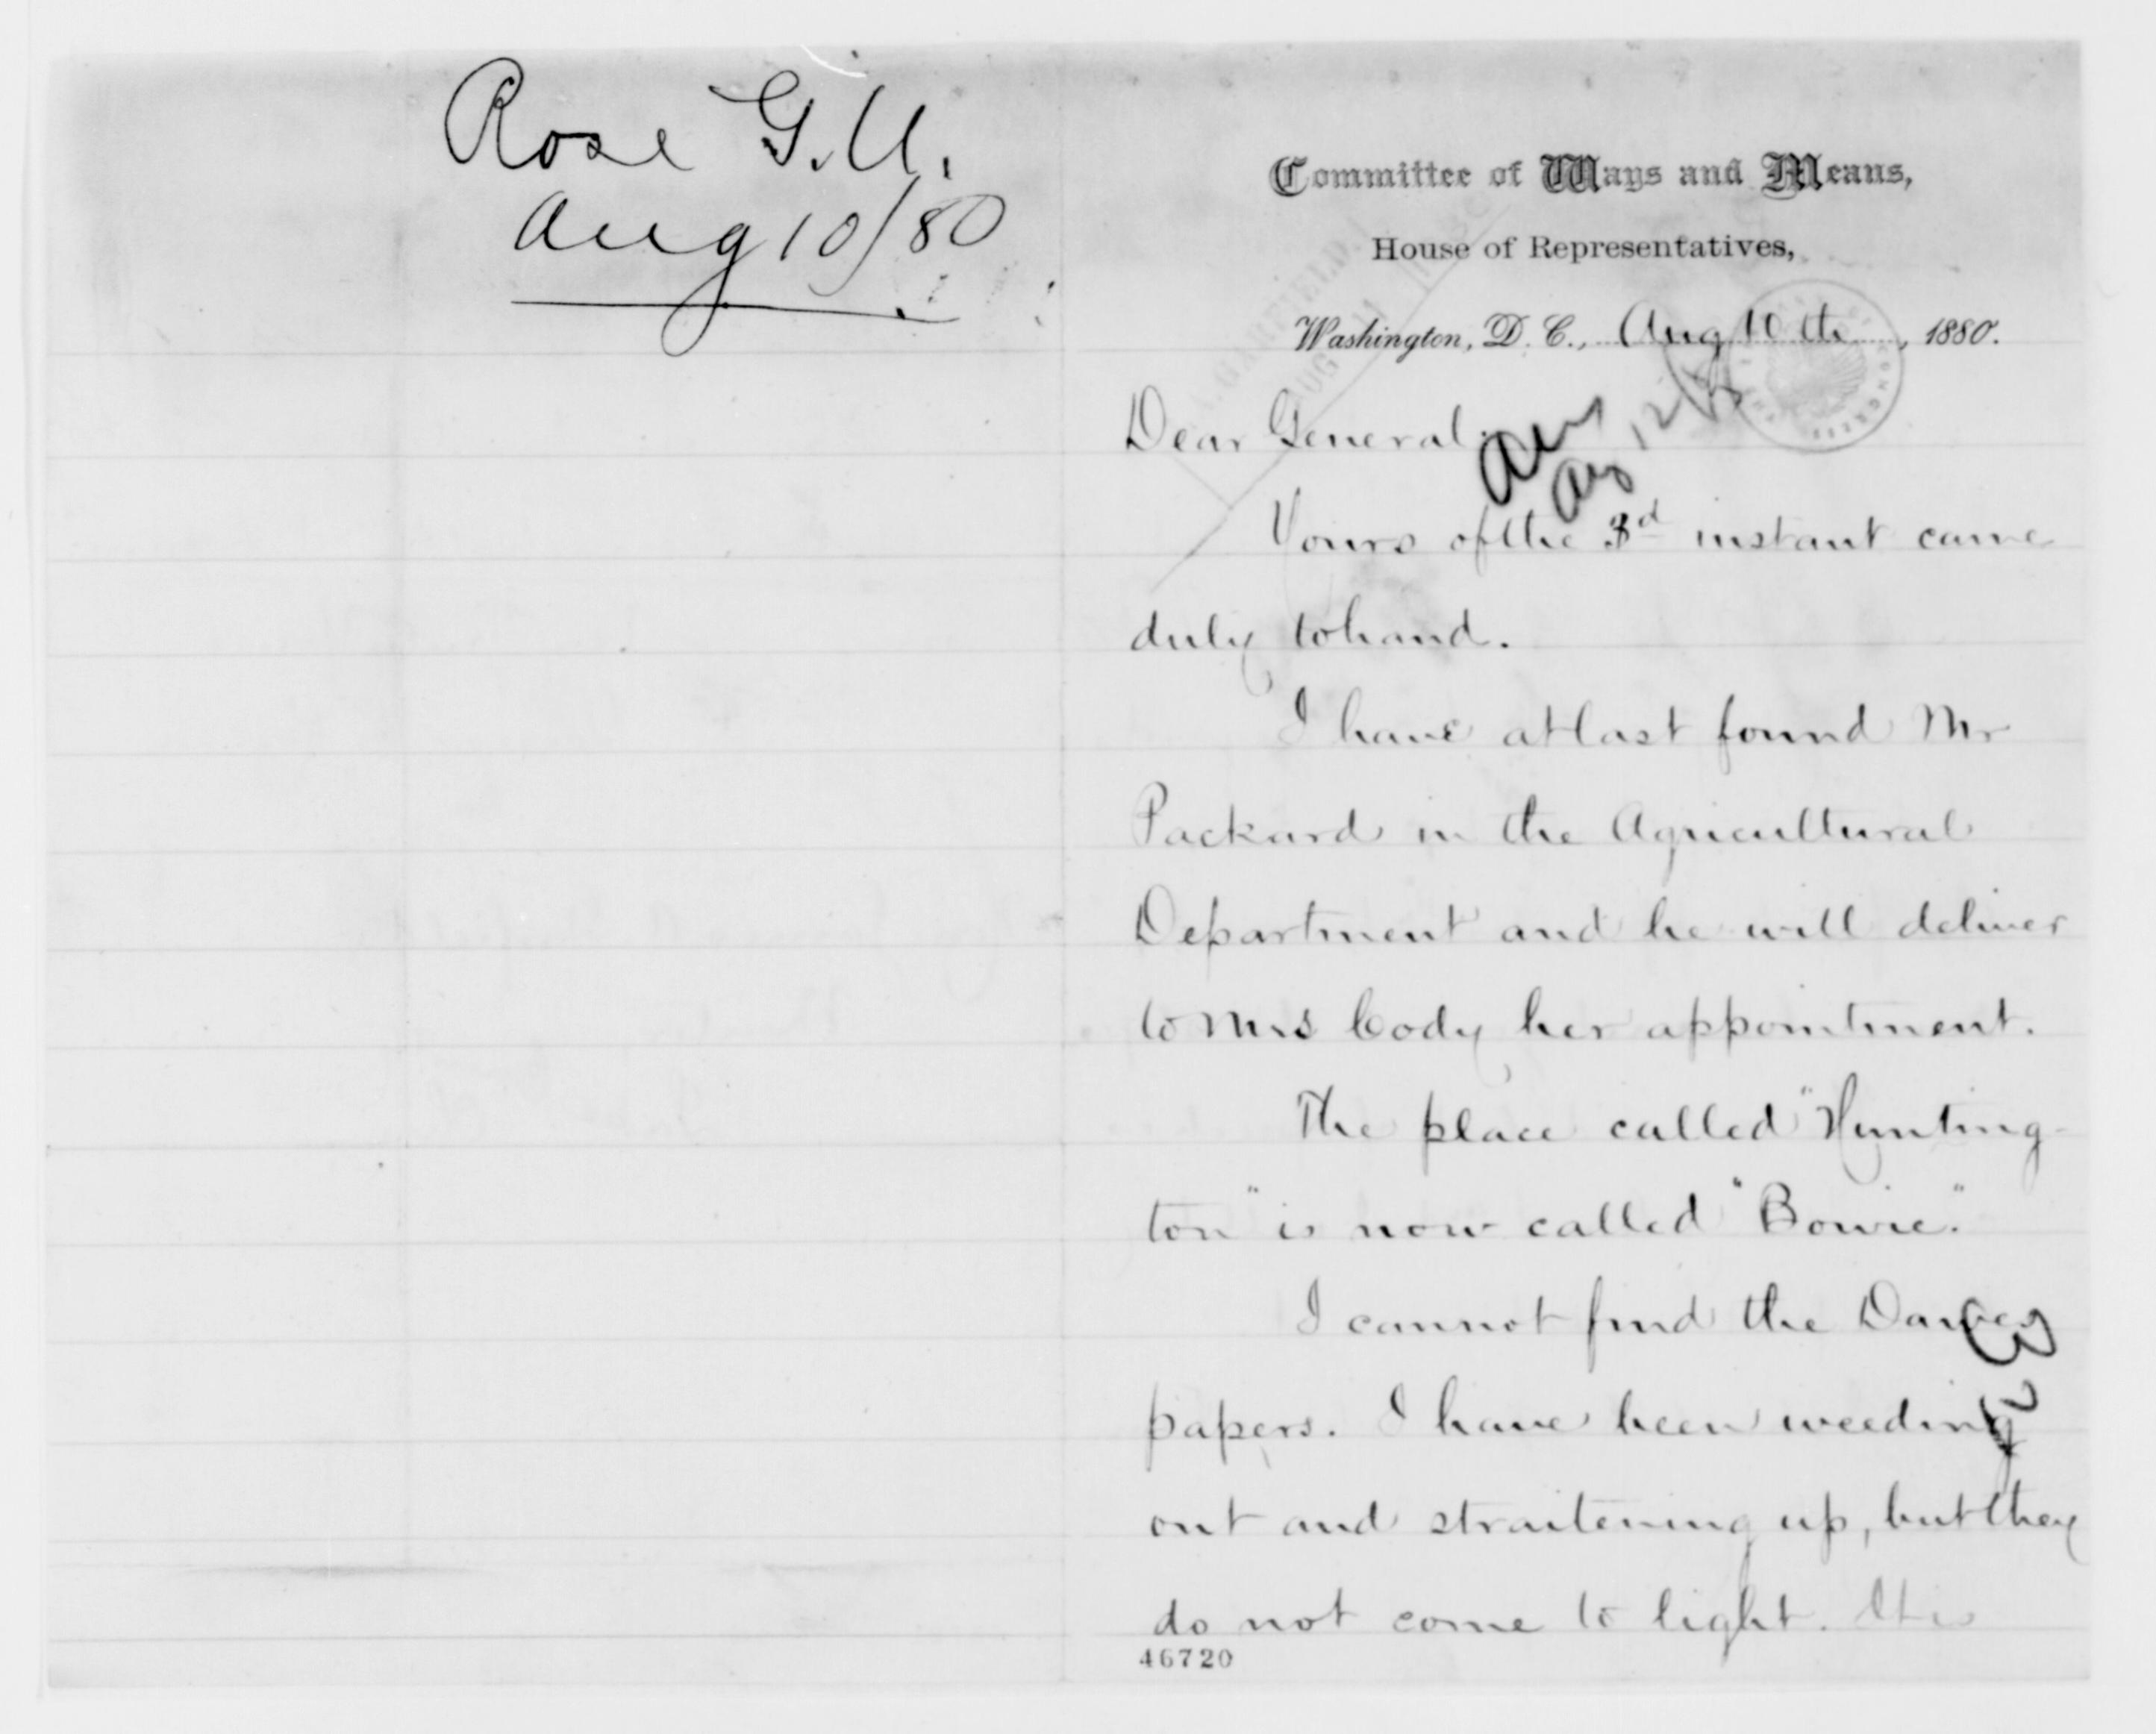 Rose G. U.
Aug 10/80
Committee of Ways and Means,
House of Representatives,
Washington, D. C., Aug 10th, 1880.
Dear General:
Ans
Aug 12
Yours of the 3d instant came
duly to hand.
I have at last found Mr
Packard in the Agricultural
Department and he will deliver
to Mrs Cody her appointment.
The place called "Hunting-
ton" is now called "Bowie."
I cannot find the
papers. I have been weeding
out and straitening up, but they
do not come to light. It is
46720